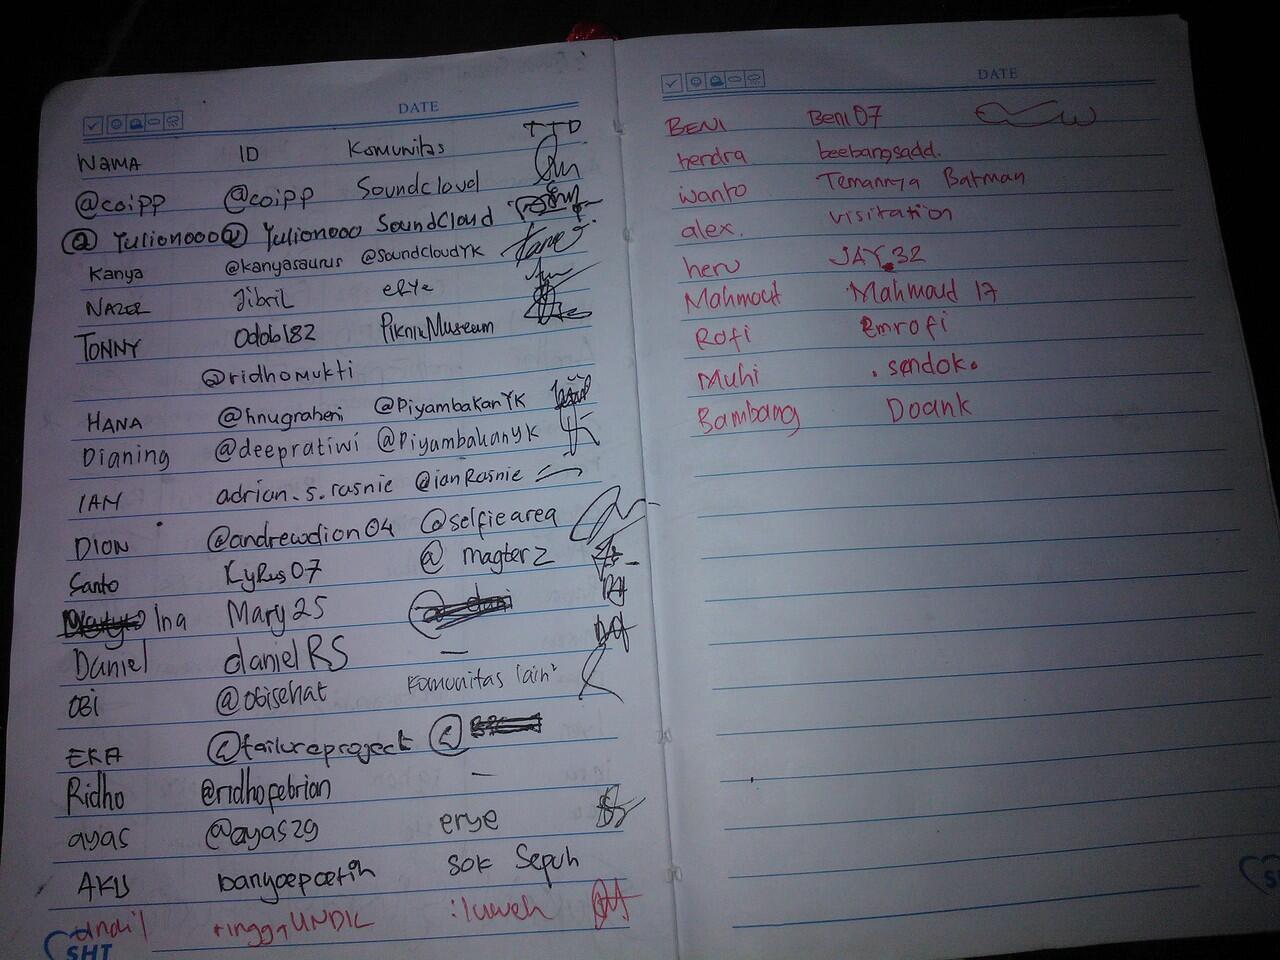 DATE
NAMA ID Komunitas TTD
@coipp @coipp Soundcloud
@Yulionooo @Yulionooo SoundCloud
Kanya @kanyasaurus @SoundCloudYK
NAZER Jibril erye
TONNY Odob182 PiknikMuseum
@ridhomukti
HANA @hnugraheni @PiyambakanYK
Dianing @deepratiwi @PiyambakanYK
IAN adrian.s.rasnie @ianRasnie
DION @andrewdion04 @selfiearea
Santo Kyrus07 @magterz
Ina Mary25
Daniel danielRS -
OBI @obisehat Komunitas lain²
EKA @failureproject @
Ridho @ridhofebrian -
ayas @ayas29 erye
AKU banyoepoetih SOK Sepuh
undil ringgaUNDIL :luweh
SHT
DATE
BENI Beni07
hendra beebangsadd.
wanto Temannya Batman
alex. visitation
heru JAY.32
Mahmout Mahmoud 17
Rofi emrofi
Muhi .sendok.
Bambang Doank